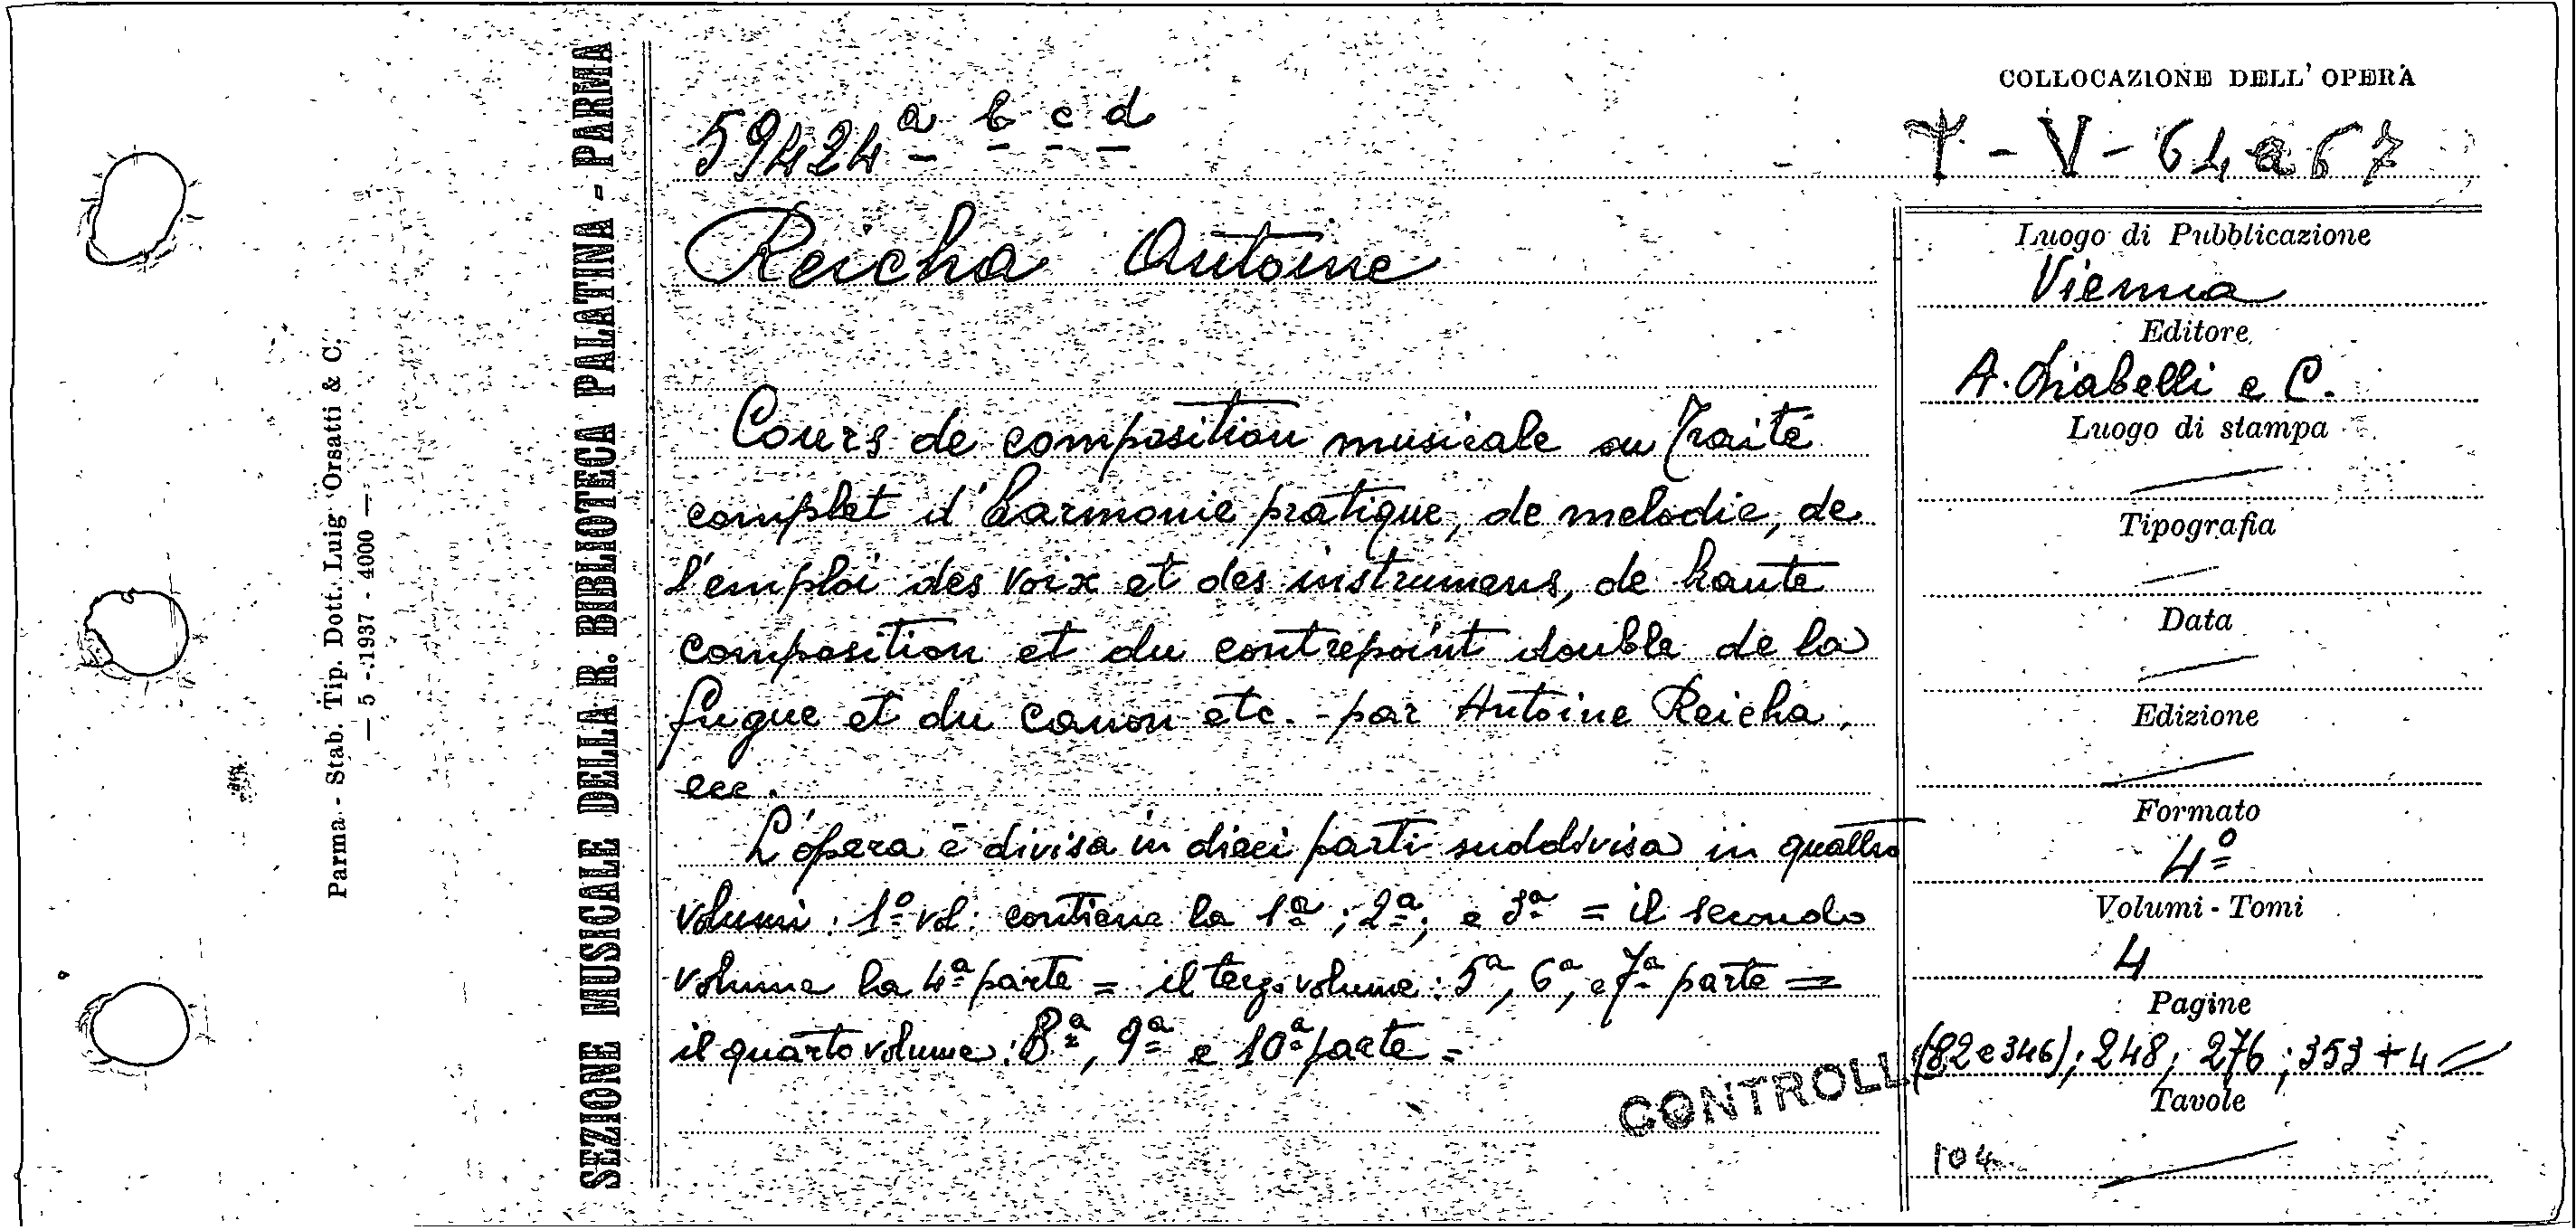 Parma - Stab. Tip. Dott. Luig Orsatti & C.
— 5 - 1937 - 4000 —
SEZIONE MUSICALE DELLA R. BIBLIOTECA PALATINA - PARMA
59424 a b c d
Reicha Antoine
Cours de composition musicale ou Traité
complet d'harmonie pratique, de melodie, de
l'emploi des voix et des instrumens, de haute
composition et du contrepoint double de la
fugue et du canon etc. - par Antoine Reicha,
ecc.
L'opera è divisa in dieci parti suddivisa in quattro
volumi: 1º vol: contiene la 1ª; 2ª; e 3ª = il secondo
volume la 4ª parte = il terzo volume: 5ª, 6ª, e 7ª parte =
il quarto volume: 8ª, 9ª e 10ª parte =
CONTROLL
COLLOCAZIONE DELL' OPERA
- V - 64 a 67
Luogo di Pubblicazione
Vienna
Editore
A. Diabelli e C.
Luogo di stampa
Tipografia
Data
Edizione
Formato
4º
Volumi - Tomi
4
Pagine
(82 e 346); 248; 276; 353 + 4 =
Tavole
104